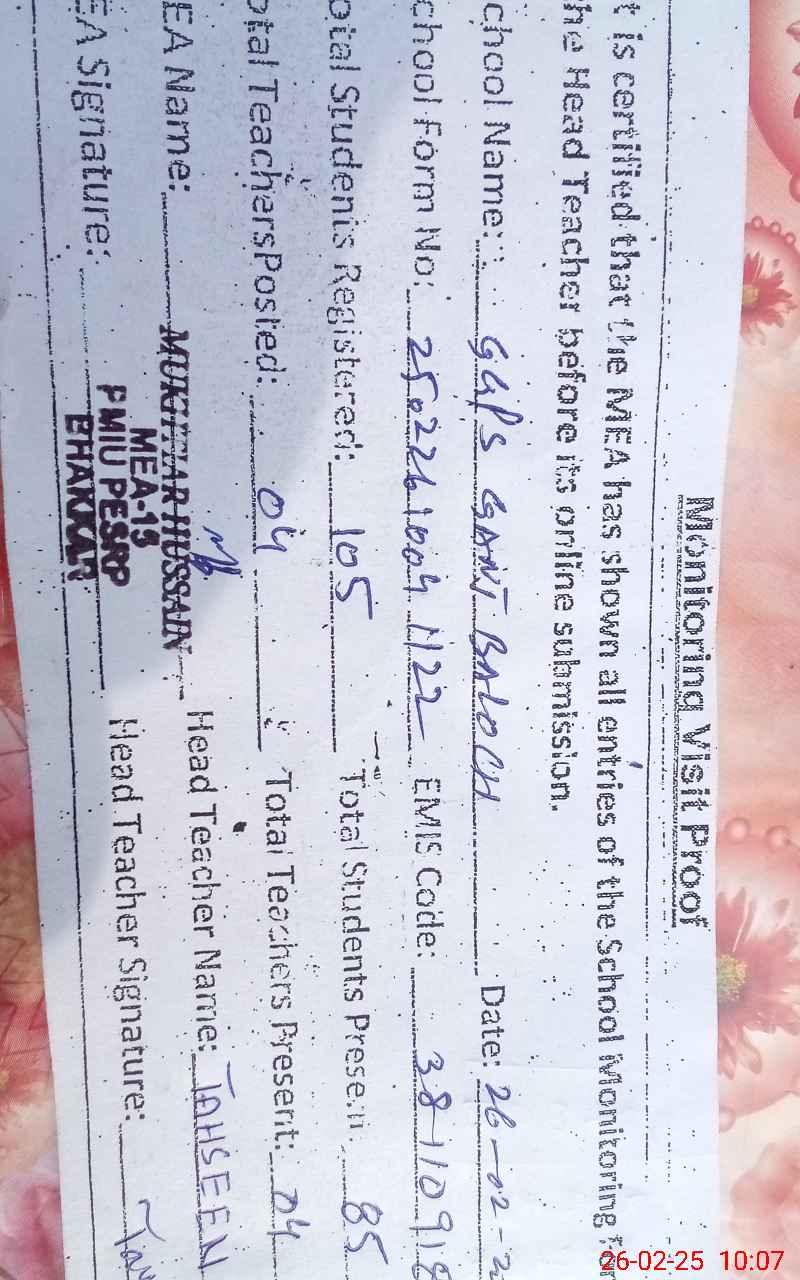 Monitoring Visit Proof
t is certified that the MEA has shown all entries of the School Monitoring For
he Head Teacher before its online submission.
chool Name: GGPS GANJ BALOCH Date: 26-02-2
chool Form No: EMIS Code: 3811091
otal Students Registered: 105 Total Students Presen 85
otal TeachersPosted: 04 Total Teachers Present: 04
EA Name: MUKHTIAR HUSSAIN Head Teacher Name: TAHSEEN
EA Signature: Head Teacher Signature: Tah
MEA-15
PMIU PESRP
BHAKKAR
26-02-25 10:07